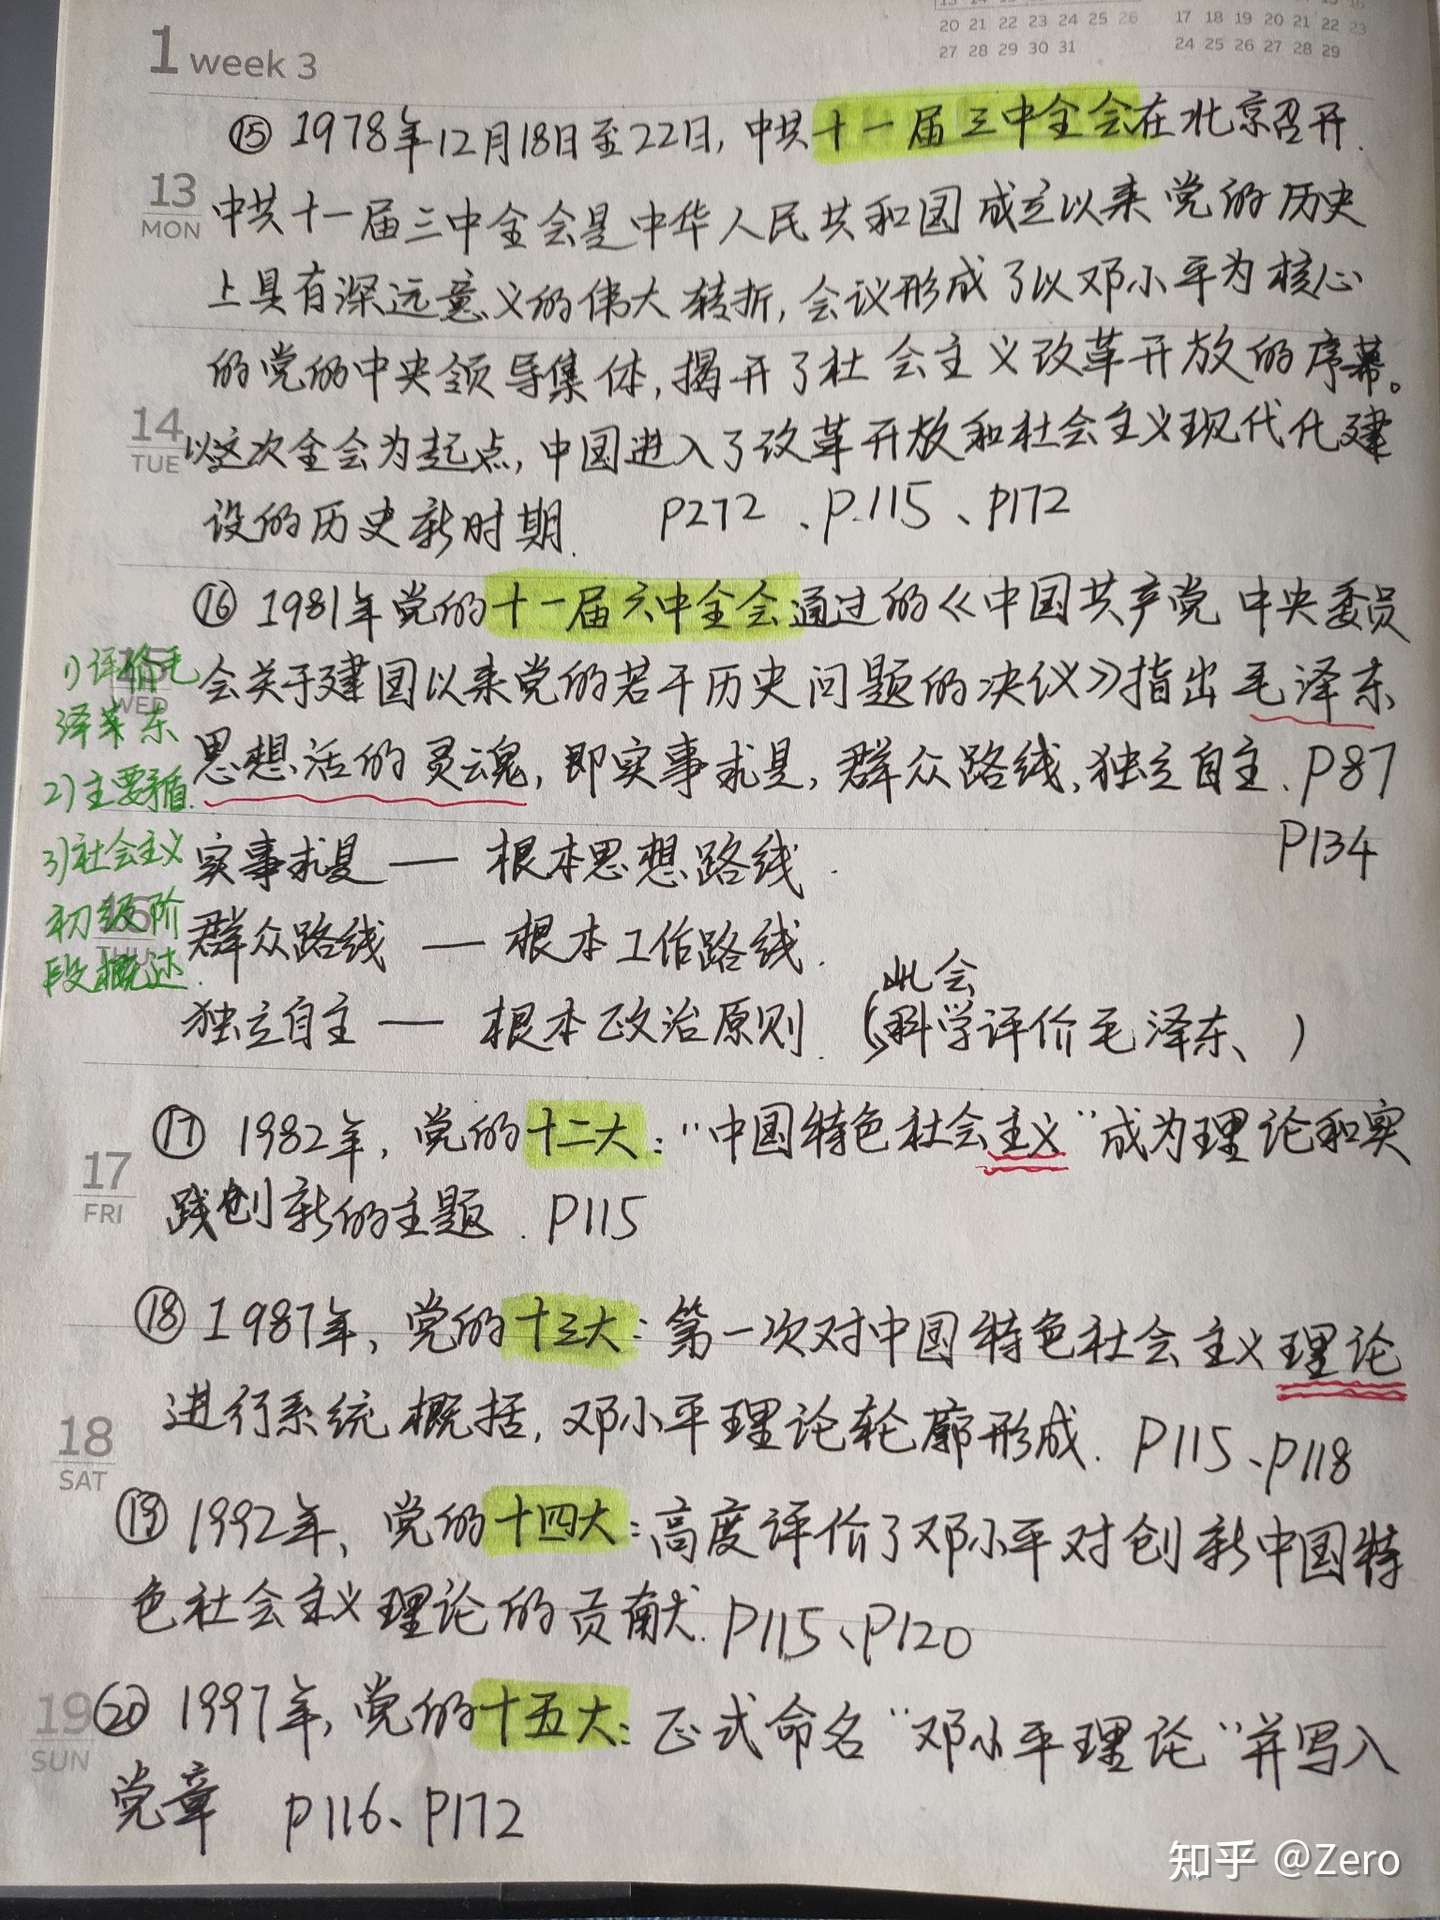 1 week 3
20 21 22 23 24 25 26
27 28 29 30 31
17 18 19 20 21 22 23
24 25 26 27 28 29
⑮ 1978年12月18日至22日,中共十一届三中全会在北京召开.
13
MON
中共十一届三中全会是中华人民共和国成立以来党的历史
上具有深远意义的伟大转折,会议形成了以邓小平为核心
的党的中央领导集体,揭开了社会主义改革开放的序幕。
14
TUE
以这次全会为起点,中国进入了改革开放和社会主义现代化建
设的历史新时期. P272、P.115、P172
⑯ 1981年党的十一届六中全会通过的《中国共产党中央委员
会关于建国以来党的若干历史问题的决议》指出毛泽东
思想活的灵魂,即实事求是,群众路线,独立自主.P87
P134
WED
1)评价毛
泽东
2)主要矛盾.
3)社会主义
初级阶
段概述.
实事求是 — 根本思想路线.
16
THU
群众路线 — 根本工作路线.
独立自主 — 根本政治原则.(此会科学评价毛泽东、)
17
FRI
⑰ 1982年,党的十二大:"中国特色社会主义"成为理论和实
践创新的主题. P115
⑱ 1987年,党的十三大:第一次对中国特色社会主义理论
进行系统概括,邓小平理论轮廓形成. P115、P118
18
SAT
⑲ 1992年、党的十四大:高度评价了邓小平对创新中国特
色社会主义理论的贡献.P115、P120
19
SUN
⑳ 1997年,党的十五大:正式命名"邓小平理论"并写入
党章 P116、P172
知乎 @Zero